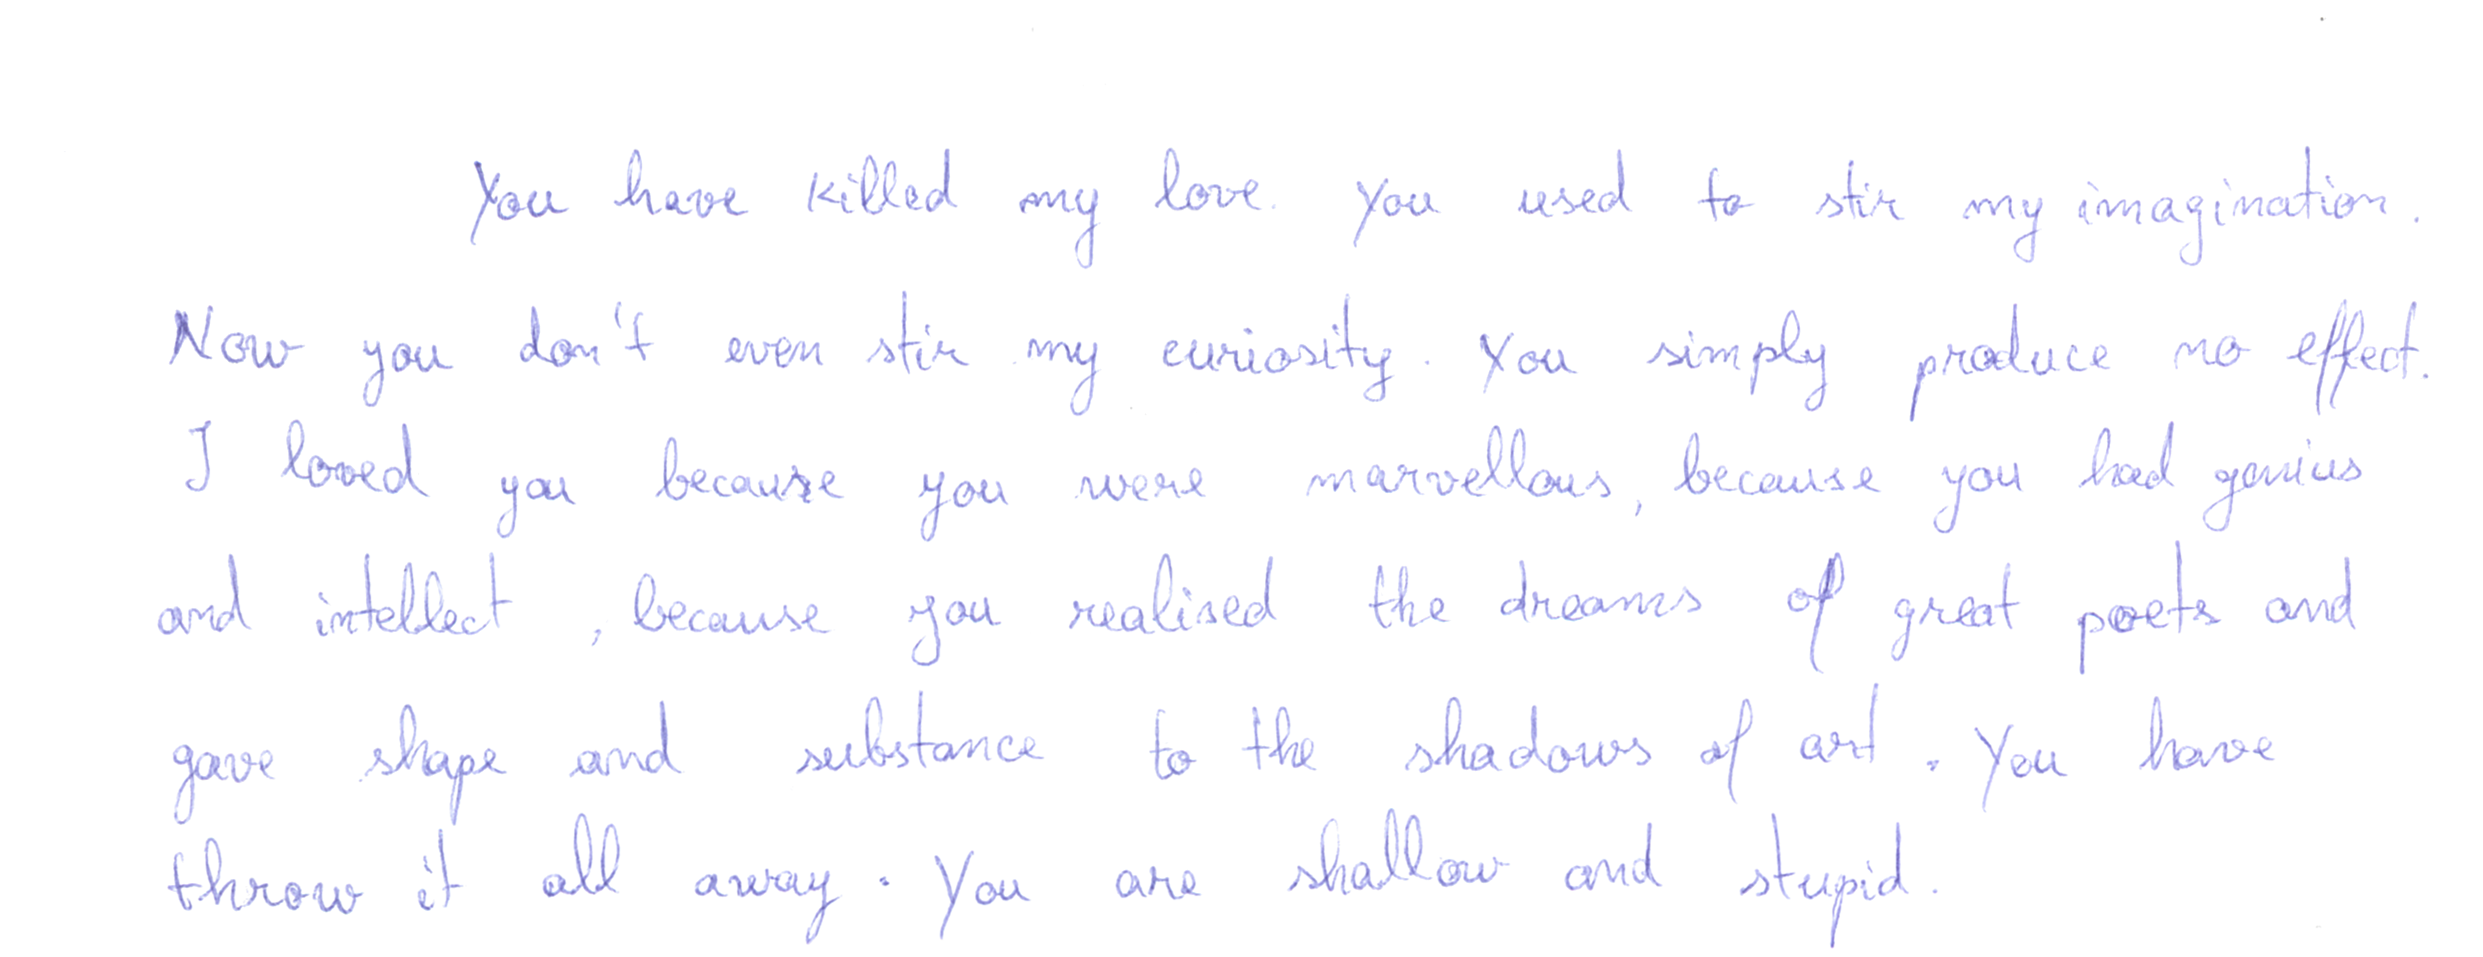 You have killed my love. You used to stir my imagination.
Now you don't even stir my curiosity. You simply produce no effect.
I loved you because you were marvellous, because you had genius
and intellect, because you realised the dreams of great poets and
gave shape and substance to the shadows of art. You have
throw it all away. You are shallow and stupid.